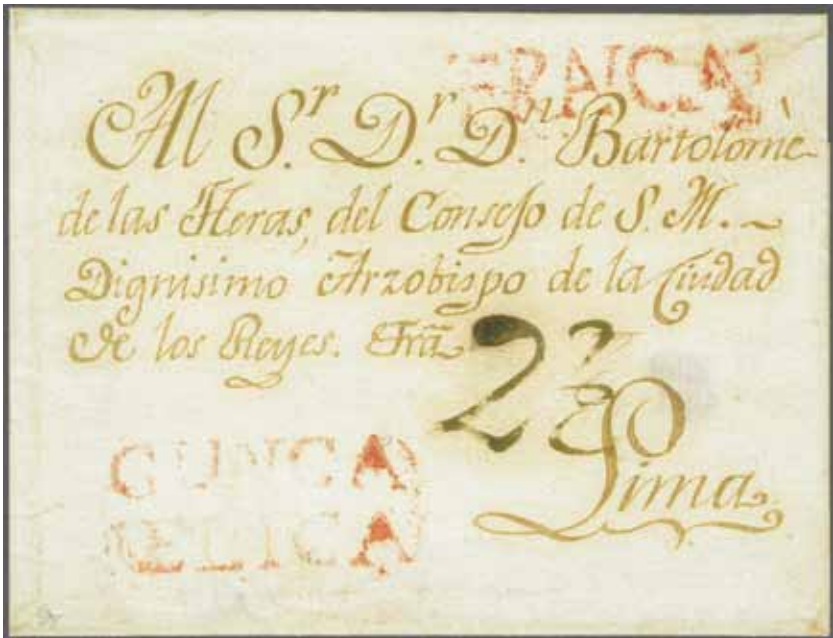 FRANCA
Al S.r D.r D.n Bartolomè
de las Heras, del Consejo de S. M.
Dignisimo Arzobispo de la Ciudad
de los Reyes. Frã
2
Lima
GUNCA
BELICA